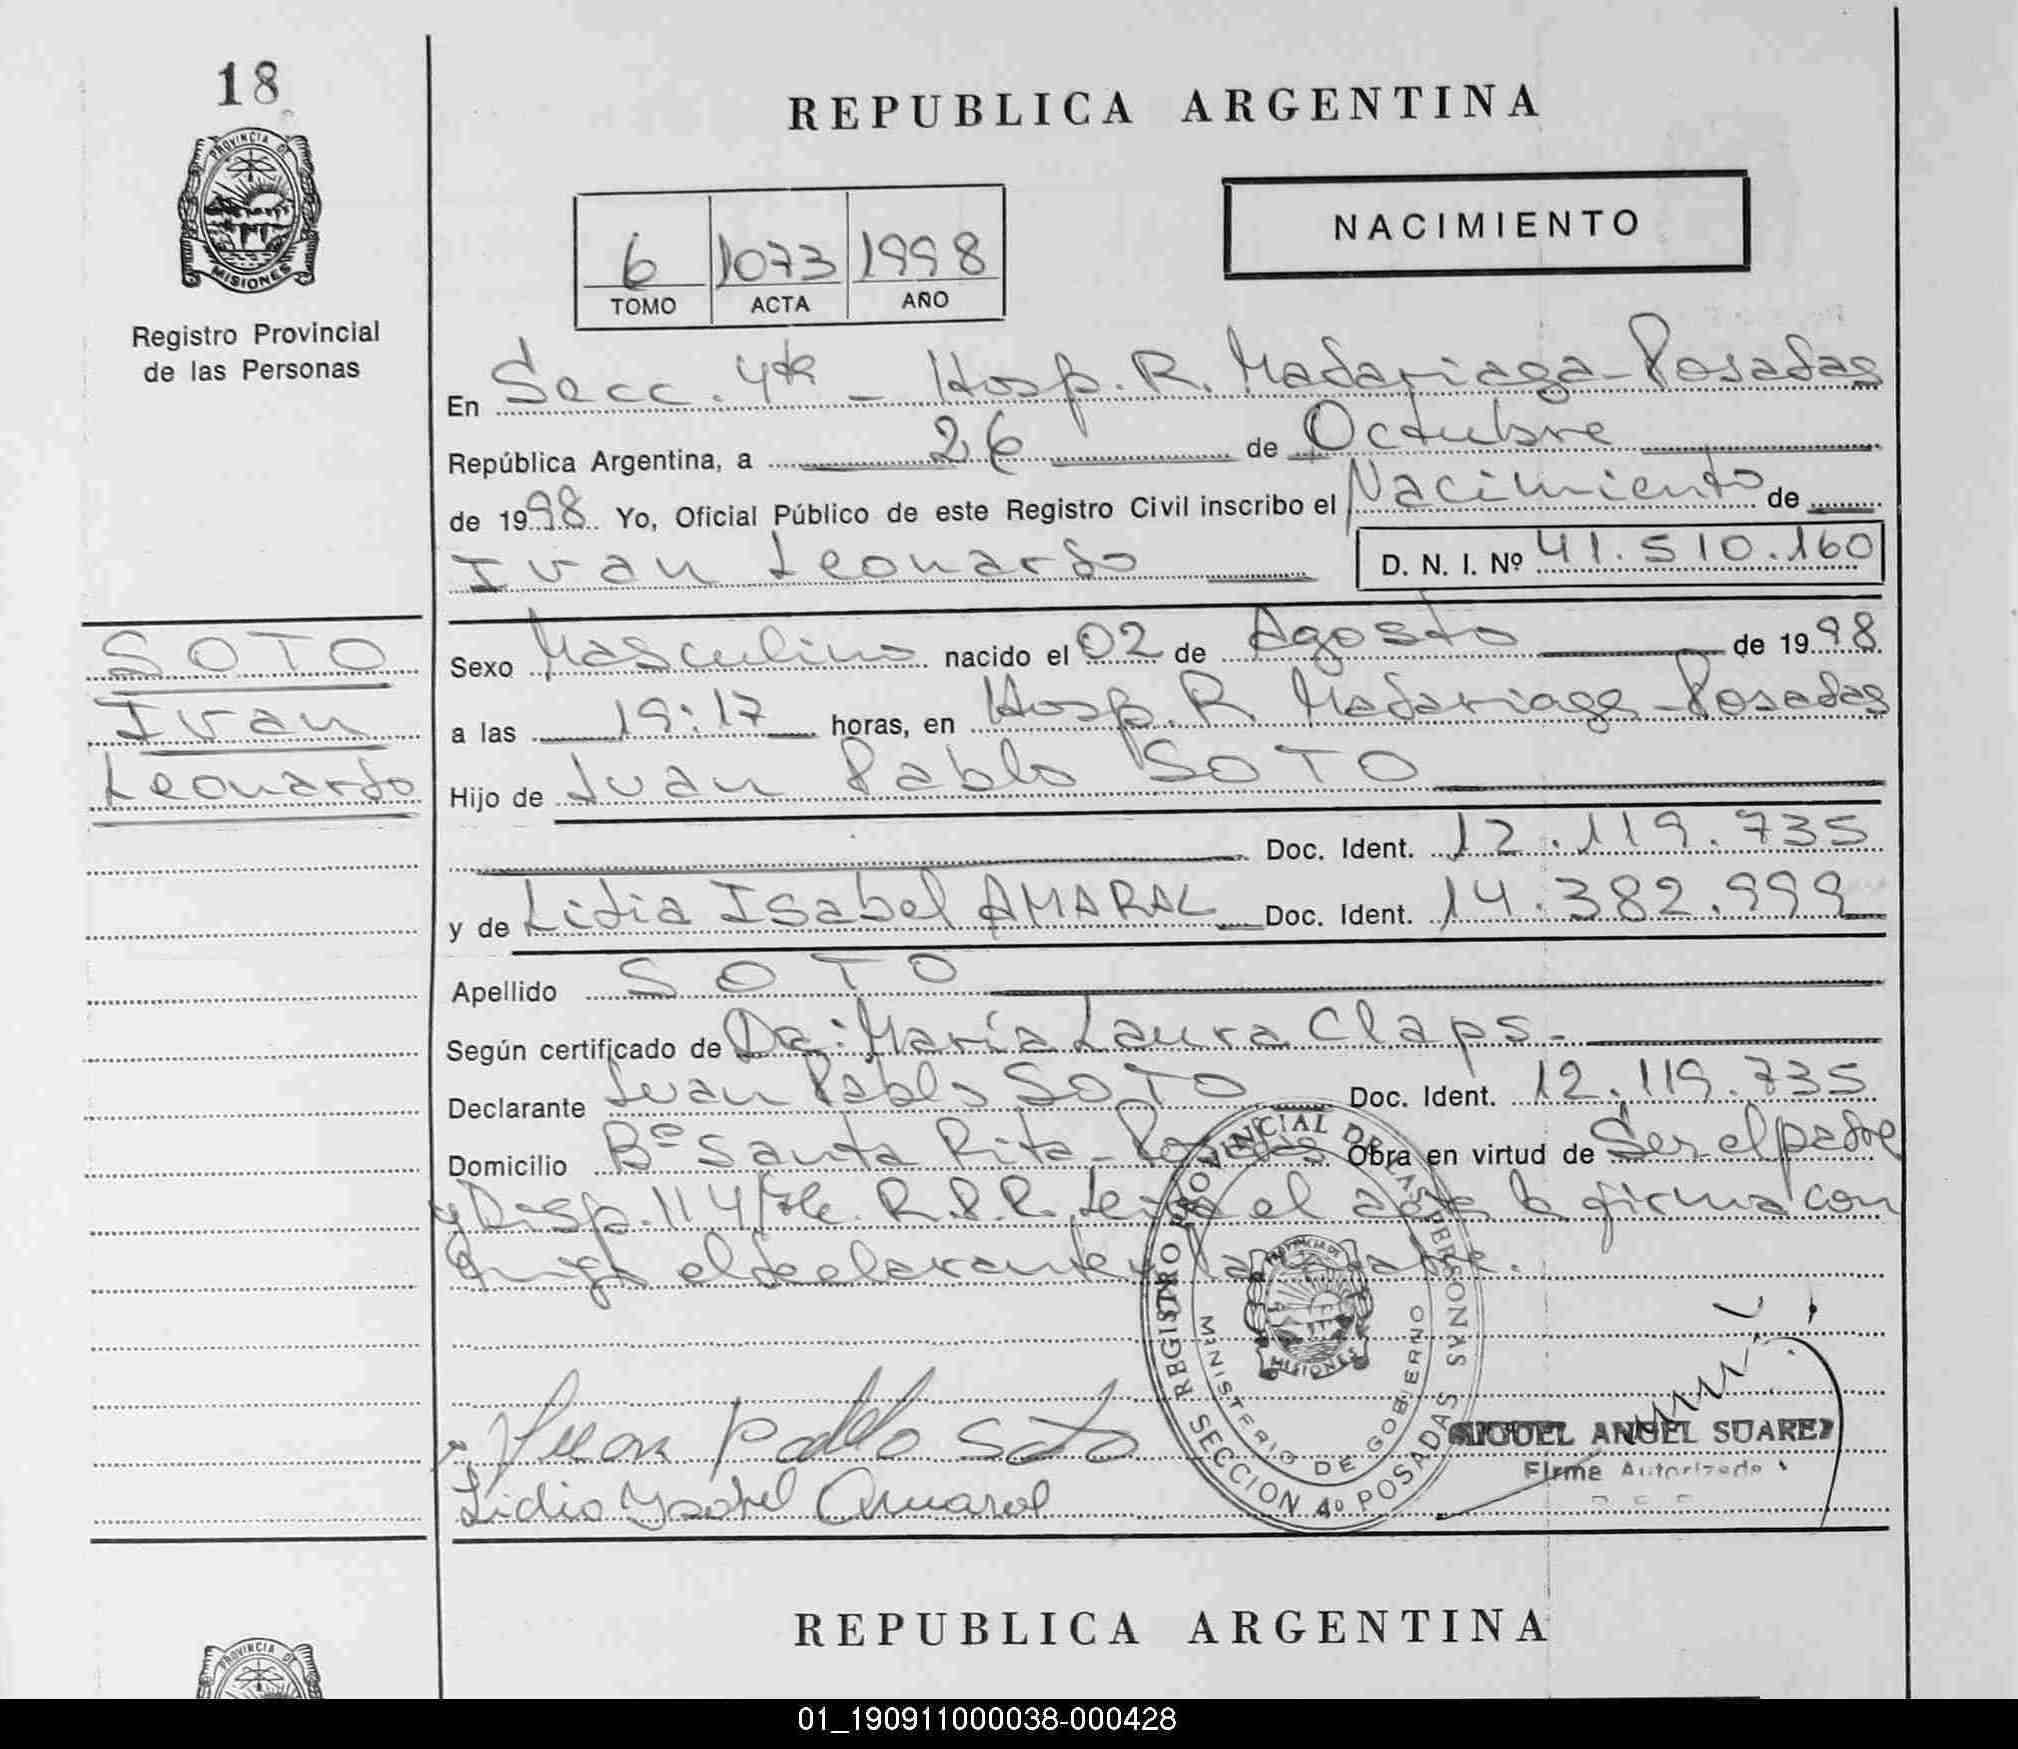 18
PROVINCIA DE
MISIONES
Registro Provincial
de las Personas
REPUBLICA ARGENTINA
NACIMIENTO
6 1073 1998
TOMO ACTA AÑO
En Secc. 4ta - Hosp. R. Madariaga - Posadas
República Argentina, a 26 de Octubre
de 1998 Yo, Oficial Público de este Registro Civil inscribo el Nacimiento de
Ivan Leonardo D. N. I. Nº 41.510.160
SOTO
Ivan
Leonardo
Sexo Masculino nacido el 02 de Agosto de 1998
a las 19:17 horas, en Hosp. R. Madariaga - Posadas
Hijo de Juan Pablo SOTO
Doc. Ident. 12.119.735
y de Lidia Isabel AMARAL Doc. Ident. 14.382.999
Apellido SOTO
Según certificado de Dra: María Laura Claps.-
Declarante Juan Pablo SOTO Doc. Ident. 12.119.735
Domicilio Bº Santa Rita - Posadas Obra en virtud de Ser el padre
y Disp. 114 R.P.P. Leida el acta la firma con
migo el declarante y la madre.
Juan Pablo Soto
Lidia Ysabel Amaral
REGISTRO PROVINCIAL DE LAS PERSONAS
MINISTERIO DE GOBIERNO
PROVINCIA DE
MISIONES
SECCION 4º POSADAS
MIGUEL ANGEL SUAREZ
Firma Autorizada
REPUBLICA ARGENTINA
PROVINCIA DE
01_190911000038-000428